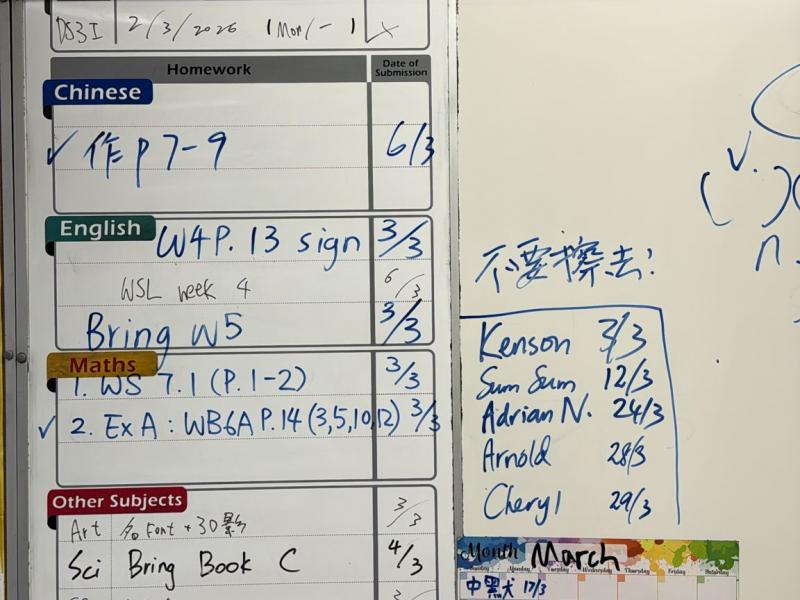 2/3/2026 1 Mon
Homework Date of Submission
Chinese
✓ 作 p 7-9 6/3
English
W4 P. 13 sign 3/3
WSL week 4 6/3
Bring W5 3/3
Maths
1. WS 7.1 (P. 1-2) 3/3
✓ 2. Ex A : WB6A P.14 (3,5,10,12) 3/3
Other Subjects
Art Font + 3D 3/3
Sci Bring Book C 4/3
3/
不要擦去!
Kenson 3/3
Sum Sum 12/3
Adrian N. 24/3
Arnold 28/3
Cheryl 29/3
Month March
Sunday Monday Tuesday Wednesday Thursday Friday Saturday
中黑犬 17/3
V.
n.